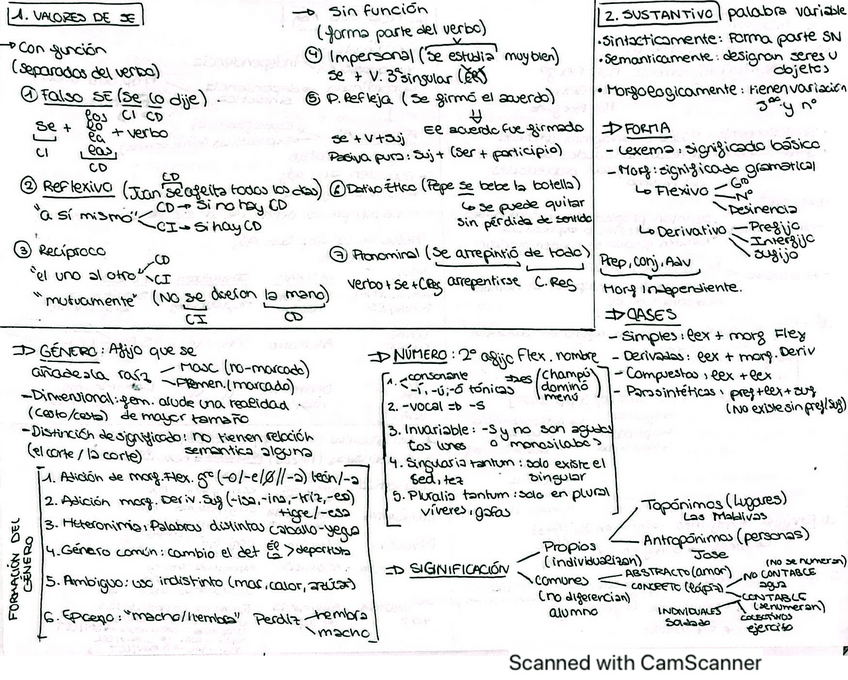 1. VALORES DE SE
→ Con función
(separados del verbo)
① Falso SE (Se lo dije)
CI CD
Se + los lo la las + verbo
CI
CD
② Reflexivo (Juan se afeita todos los días)
CD
"a sí mismo" CD → Si no hay CD
CI → Si hay CD
③ Recíproco
"el uno al otro" CD
CI
"mutuamente" (No se dieron la mano)
CI CD
→ Sin función
(forma parte del verbo)
④ Impersonal (Se estudia muy bien)
se + V. 3ª singular
⑤ P. Refleja (Se firmó el acuerdo)
El acuerdo fue firmado
se + V + Suj
Pasiva pura: Suj + (ser + participio)
⑥ Dativo Ético (Pepe se bebe la botella)
↳ se puede quitar
sin pérdida de sentido
⑦ Pronominal (Se arrepintió de todo)
verbo + se + CReg arrepentirse C. Reg
2. SUSTANTIVO palabra variable
• Sintácticamente: Forma parte SN
• Semanticamente: designan seres u
objetos
• Morfologicamente: tienen variación
y nº
⇒ FORMA
- Lexema: significado básico
- Morf: significado gramatical
↳ Flexivo Gº
Nº
Desinencia
↳ Derivativo Prefijo
Interfijo
Sufijo
Prep, Conj, Adv
Morf Independiente.
⇒ CLASES
- Simples: lex + morg Flex
- Derivadas: lex + morg. Deriv
- Compuestas: lex + lex
- Parasintéticas: pref + lex + suf
(No existe sin pref/suf)
⇒ GÉNERO: Afijo que se
añade a la raíz Masc. (no-marcado)
Femen. (marcado)
- Dimensional: fem. alude una realidad
(cesto/cesta) de mayor tamaño
- Distinción de significado: no tienen relación
(el corte / la corte) semántica alguna
FORMACIÓN DEL GÉNERO
1. Adición de morg. Flex. gº (-o/-e/Ø//-a) león/-a
2. Adición morg. Deriv. Suf (-isa, -ina, -triz, -esa)
tigre/-esa
3. Heteronimia: Palabras distintas caballo-yegua
4. Género común: cambio el det El La > deportista
5. Ambiguo: uso indistinto (mar, calor, azúcar)
6. Epiceno: "macho/hembra" Perdiz hembra
macho
⇒ NÚMERO: 2º afijo Flex. nombre
1. consonante
-í, -ú, -ó tónicas (champú
dominó
menú)
2. -vocal ⇒ -s
3. Invariable: -s y no son agudas
Los lunes o monosílabas
4. Singularia tantum: solo existe el
Sed, tez singular
5. Pluralia tantum: solo en plural
víveres, gafas
⇒ SIGNIFICACIÓN
Propios
(individualizan)
Topónimos (Lugares)
Las Maldivas
Antropónimos (personas)
Jose
Comunes
(no diferencian)
alumno
ABSTRACTO (amor)
CONCRETO (lápiz)
(no se numeran)
NO CONTABLE
agua
CONTABLE
(se numeran)
INDIVIDUALES
Soldado
COLECTIVOS
ejército
Scanned with CamScanner